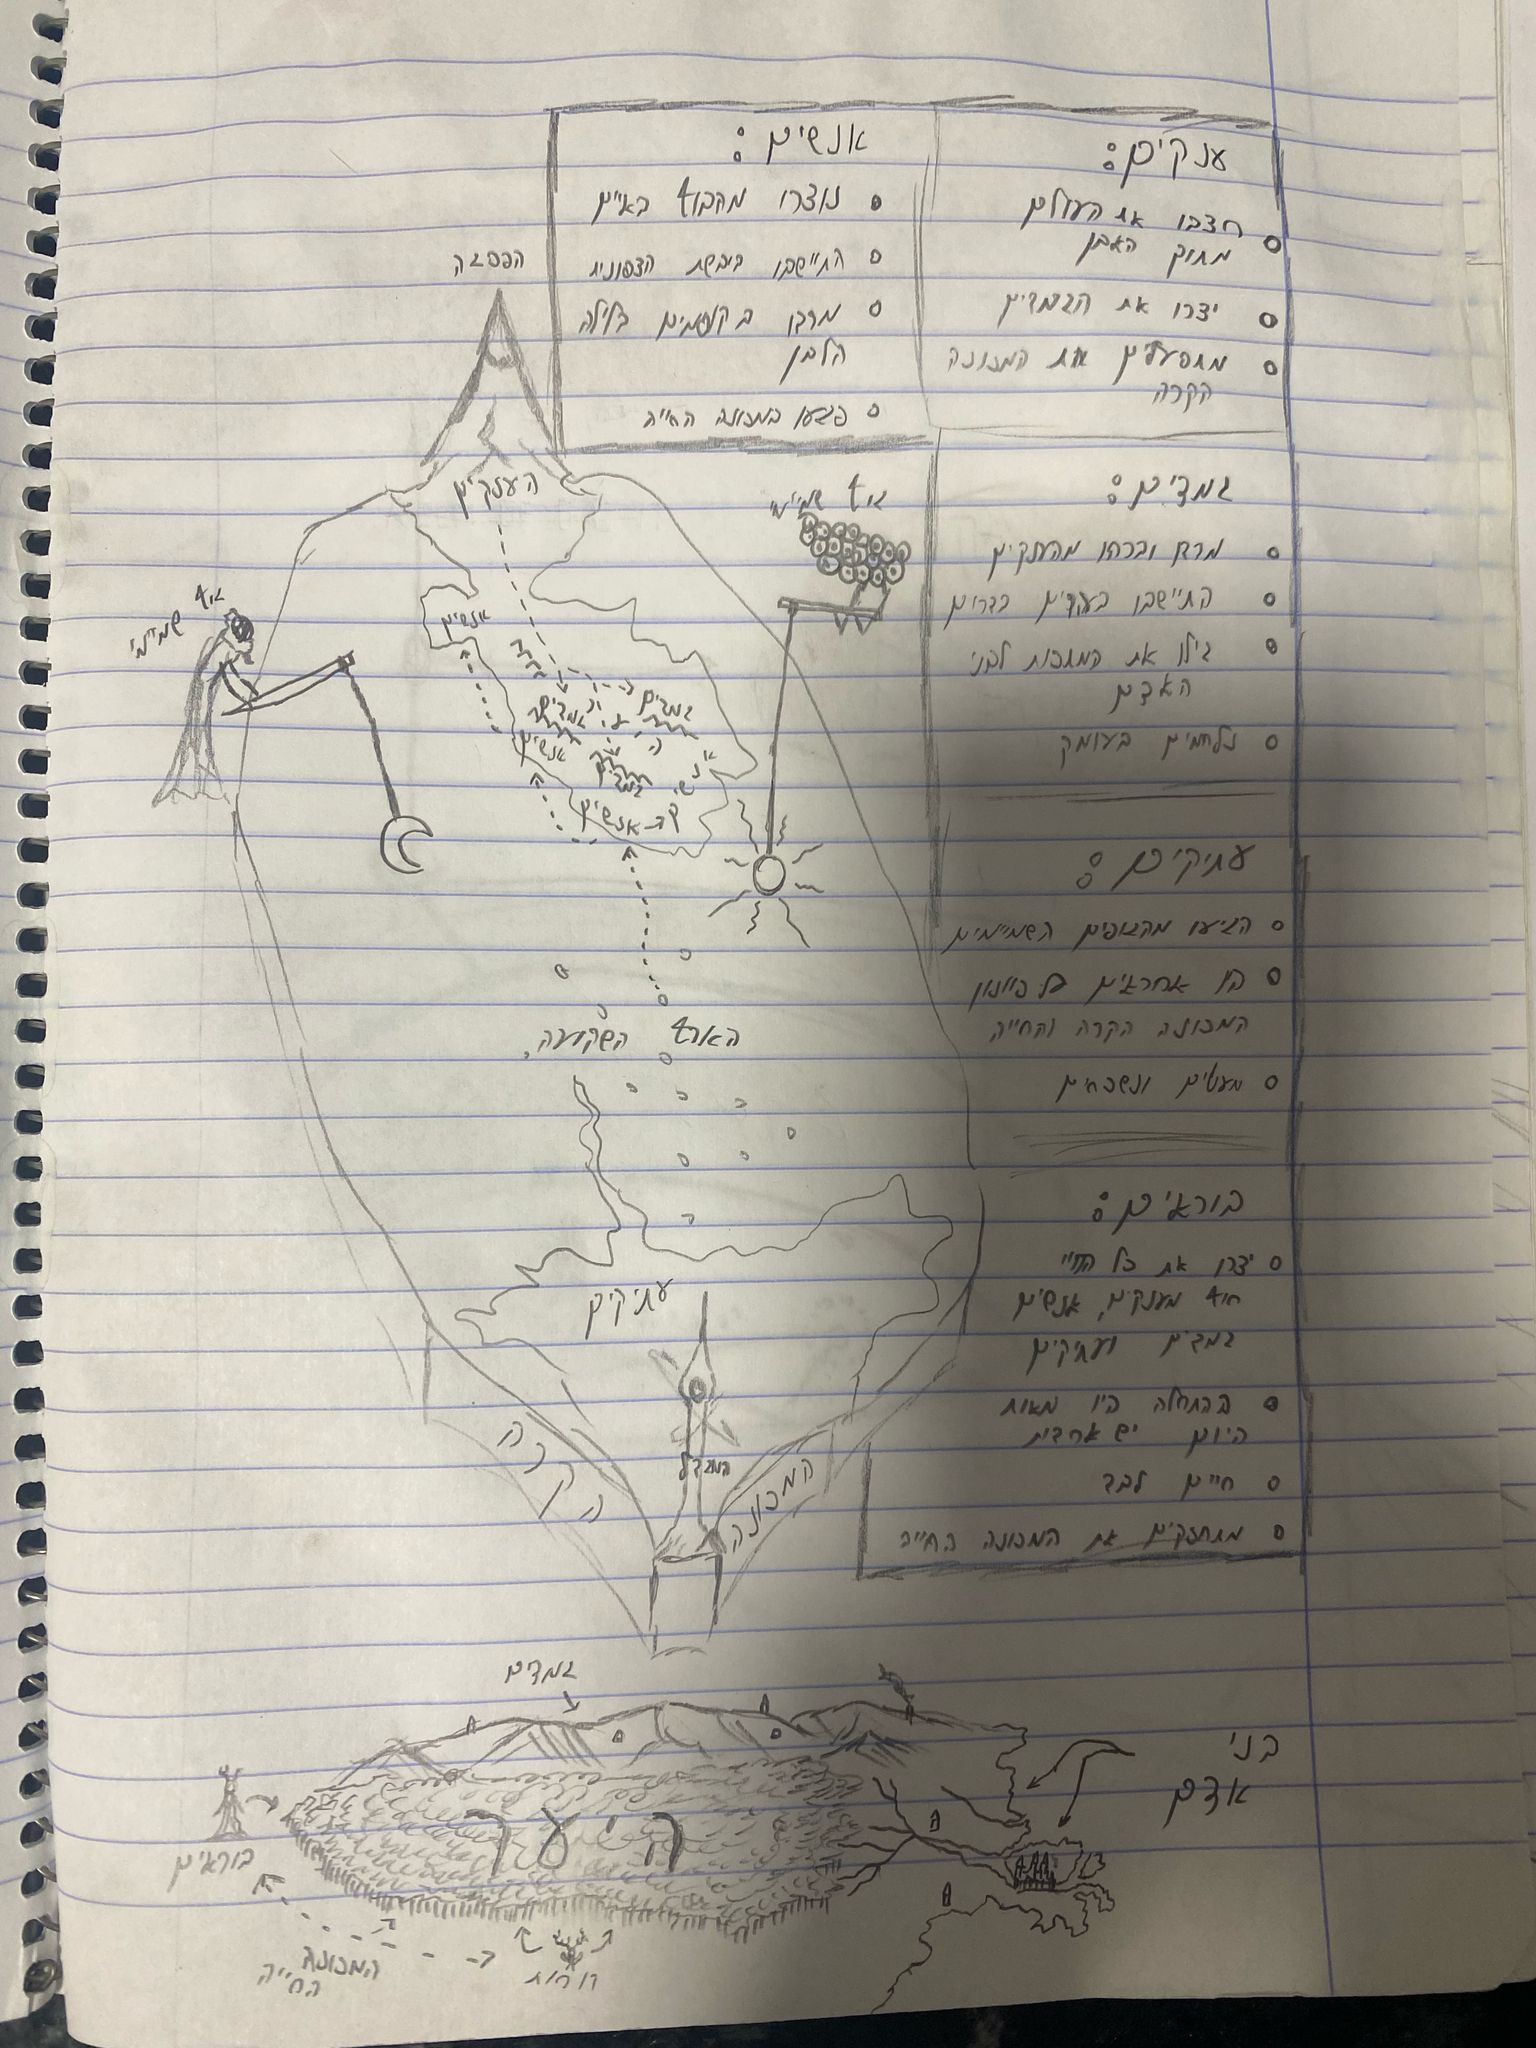 ענקים:
חצבו את העולם
מתוך האבן
יצרו את הגמדים
מתפעלים את המכונה
הקרה
אנשים:
נוצרו מהבוץ באיים
התיישבו ביבשת הצפונית
מרדו בקוסמים בלילה
הלבן
פגעו במכונה החייה
גמדים:
מרדו וברחו מהענקים
התיישבו בעקדים בהרים
גילו את המתכות לבני
האדם
נלחמים בעומק
עתיקים:
הגיעו מהגופים השמיימים
היו אחראים על כיוונון
המכונה הקרה והחייה
מעטים ונשכחים
בוראים:
יצרו את כל החיי
חוץ מענקים, אנשים
גמדים ועתיקים
בהתחלה היו מאות
היום יש ארבעת
חיים לבד
מתחזקים את המכונה החייה
הפסגה
הענקים
גוץ שמיימי
גוץ שמיימי
אנשים
גמדים
גמדים
אנשים
גמדים
אנשי
קד-אנשים
הארץ השקועה
עתיקים
המגדל
המכונה
הקרה
גמדים
בני
אדם
היער
בוראים
המכונה
החייה
רוחות